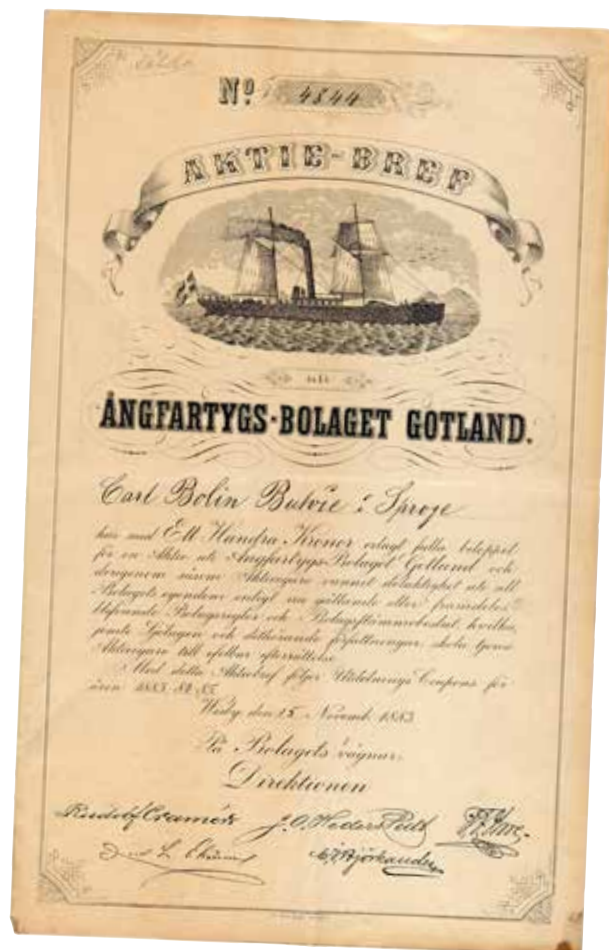 Nº 4844
AKTIE-BREF
uti
ÅNGFARTYGS-BOLAGET GOTLAND.
Carl Bolin i Sproge
har med Ett Hundra Kronor erlagt fulla beloppet
för en Aktie uti Ångfartygs-Bolaget Gotland och
derigenom såsom Aktieegare vunnit delaktighet uti all
Bolagets egendom enligt nu gällande eller framdeles
blifvande Bolagsregler och Bolagsstämmobeslut, hvilka,
jemte Sjölagen och dithörande författningar, skola tjena
Aktieegare till ofelbar efterrättelse.
Med detta Aktiebref följer Utdelnings Coupons för
åren 1883. 84. 85.
Wisby den 15 Novemb. 1883.
På Bolagets vägnar.
Direktionen
Rudolf Cramér
Björkander